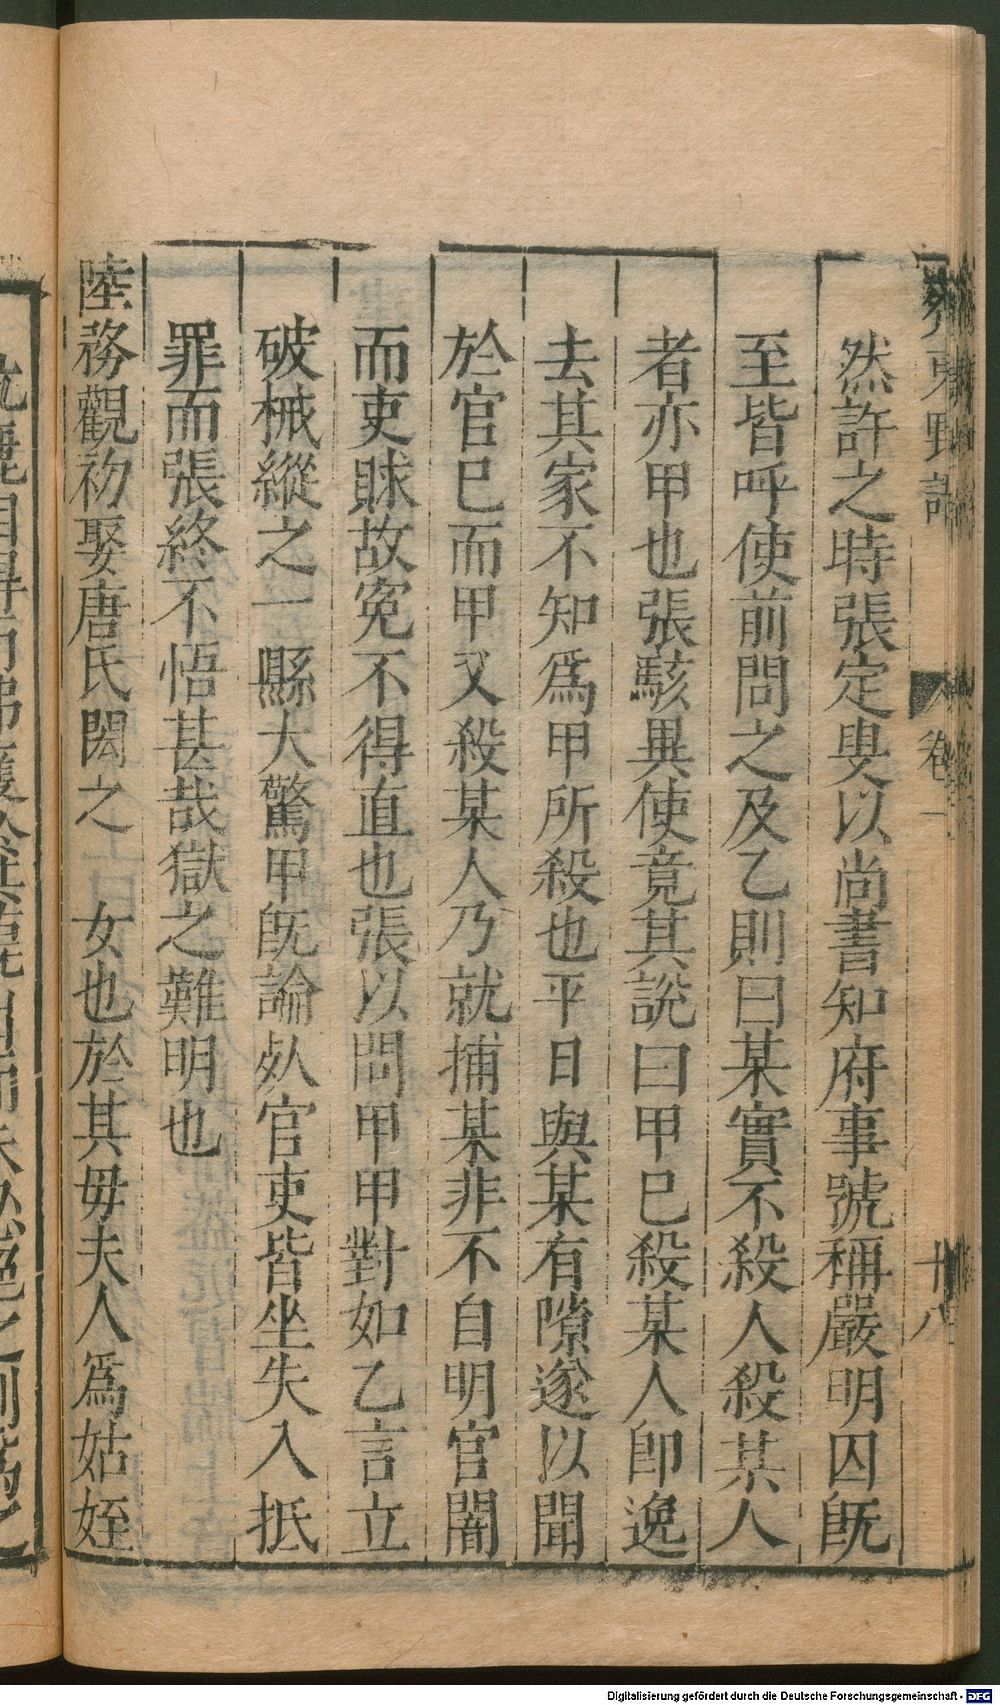 齊東野語
卷一
十八
然許之時張定叟以尚書知府事號稱嚴明囚旣
至皆呼使前問之及乙則曰某實不殺人殺某人
者亦甲也張駭異使竟其說曰甲巳殺某人卽逸
去其家不知爲甲所殺也平日與某有隙遂以聞
於官巳而甲又殺某人乃就捕某非不自明官闇
而吏賕故寃不得直也張以問甲甲對如乙言立
破械縱之一縣大驚甲旣論㱕官吏皆坐失入抵
罪而張終不悟甚哉獄之難明也
陸務觀初娶唐氏閎之 女也於其毋夫人爲姑姪
Digitalisierung gefördert durch die Deutsche Forschungsgemeinschaft - DFG